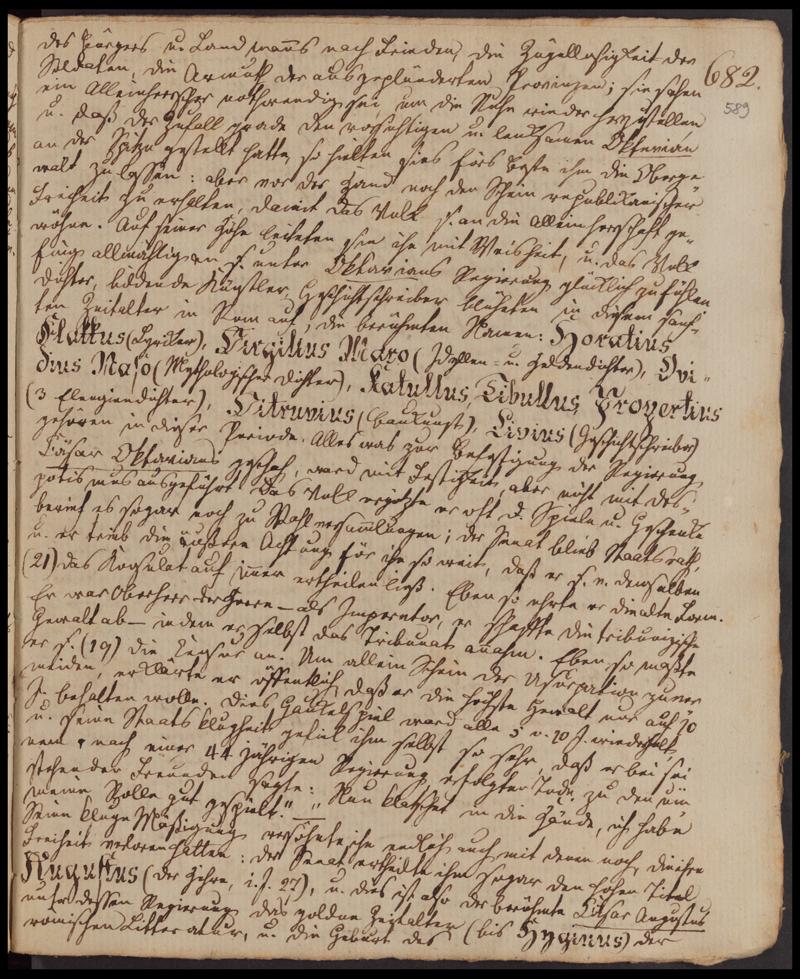 682.
589
des Bürgers u. Landmanns nach Frieden, die Zügellosigkeit der
Soldaten, die Armuth der ausgeplünderten Provinzen; sie sahen
ein Alleinherrscher nothwendig sei um die Ruhe wieder herzustellen
u. daß der Zufall grade den vorsichtigen u. lenksamen Oktavian
an der Spitze gestellt hatte, so hielten sies fürs beste ihm die Oberge
walt zu lassen: aber vor der Hand noch den Schein republikanischer
Freiheit zu erhalten, damit das Volk s. an die Alleinherrschaft ge-
wöhne. Auf seiner Höhe leiteten sie ihn mit Weisheit, u. das Volk
fing allmählig an s. unter Oktavians Regierung glücklich zu fühlen
Dichter, bildende Künstler, Geschichtschreiber blühten in diesem sanf-
ten Zeitalter in Rom auf, die berühmten Namen: Horatius
Flakkus (Lyriker), Virgilius Maro (Idyllen- u. Heldendichter), Ovi-
dius Naso (Mythologischer Dichter), Katullus, Tibullus, Propertius
(3 Elegiendichter), Vitruvius (Baukunst), Livius (Geschichtschreiber)
gehören in dieser Periode. Alles was zur Befestigung der Regierung
Cäsar Oktavians geschah, ward mit Festigkeit, aber nicht mit Des-
potismus ausgeführt. Das Volk ergötzte er oft d. Spiele u. Geschenke
berief es sogar noch zu Wahlversammlungen; der Senat blieb Staatsrath,
u. er trieb die äußere Achtung für ihn so weit, daß er s. v. demselben
(21) das Konsulat auf immer ertheilen ließ. Eben so ehrte er die alte Form.
Er war Oberherr der Heere – als Imperator, er schaffte die tribunizische
Gewalt ab – indem er selbst das Tribunat annahm. Eben so maßte
er s. (19) die Zensur an. Um allein Schein der Usurpation zuver
meiden, erklärte er öffentlich, daß er die höchste Gewalt nur auf 10
J. behalten wolle. Dies Gaukelspiel ward alle 5 o. 10 J. wiederholt,
u. seine Staatsklugheit gefiel ihm selbst so sehr, daß er bei sei
nem, nach einer 44 jährigen Regierung erfolgten Tode, zu den um
stehenden Freunden sagte: „Nun klatschet in die Hände, ich habe
meine Rolle gut gespielt." –
Seine kluge Mäßigung versöhnte ihn endlich auch mit denen noch, die ihre
Freiheit verloren hatten: der Senat ertheilte ihm sogar den hohen Titel
Augustus (der Hehre, i. J. 27), u. dies ist also der berühmte Cäsar Augustus
unter dessen Regierung das goldne Zeitalter (bis Hyginus) der
römischen Litteratur, u. die Geburt des